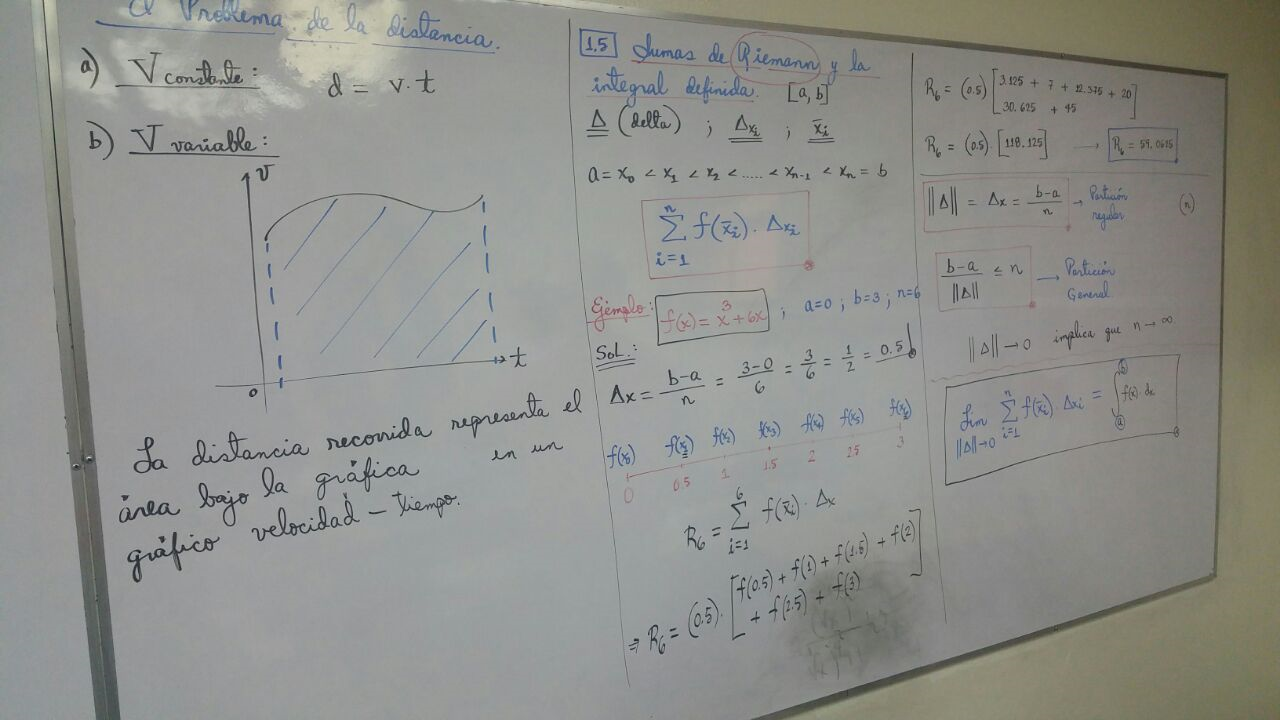 El Problema de la distancia.
a) V constante: d = v·t
b) V variable:
v
t
0
La distancia recorrida representa el
área bajo la gráfica en un
gráfico velocidad – tiempo.
1.5 Sumas de Riemann y la
integral definida. [a, b]
Δ (delta) ; Δxᵢ ; x̄ᵢ
a = x₀ < x₁ < x₂ < ..... < xₙ₋₁ < xₙ = b
∑ⁿᵢ₌₁ f(x̄ᵢ) · Δxᵢ
Ejemplo: f(x) = x³ + 6x ; a=0 ; b=3 ; n=6
Sol.:
Δx = (b-a)/n = (3-0)/6 = 3/6 = 1/2 = 0.5
f(x₀) f(x₁) f(x₂) f(x₃) f(x₄) f(x₅) f(x₆)
0 0.5 1 1.5 2 2.5 3
R₆ = ∑⁶ᵢ₌₁ f(x̄ᵢ) · Δx
⇒ R₆ = (0.5) · [f(0.5) + f(1) + f(1.5) + f(2)
+ f(2.5) + f(3)]
R₆ = (0.5) [3.125 + 7 + 12.375 + 20
30.625 + 45]
R₆ = (0.5) · [118.125] → R₆ = 59.0625
‖Δ‖ = Δx = (b-a)/n → Partición
regular (n)
(b-a)/‖Δ‖ ≤ n → Partición
General.
‖Δ‖ → 0 implica que n → ∞
Lim ‖Δ‖→0 ∑ⁿᵢ₌₁ f(x̄ᵢ) · Δxᵢ = ∫ₐᵇ f(x) · dx